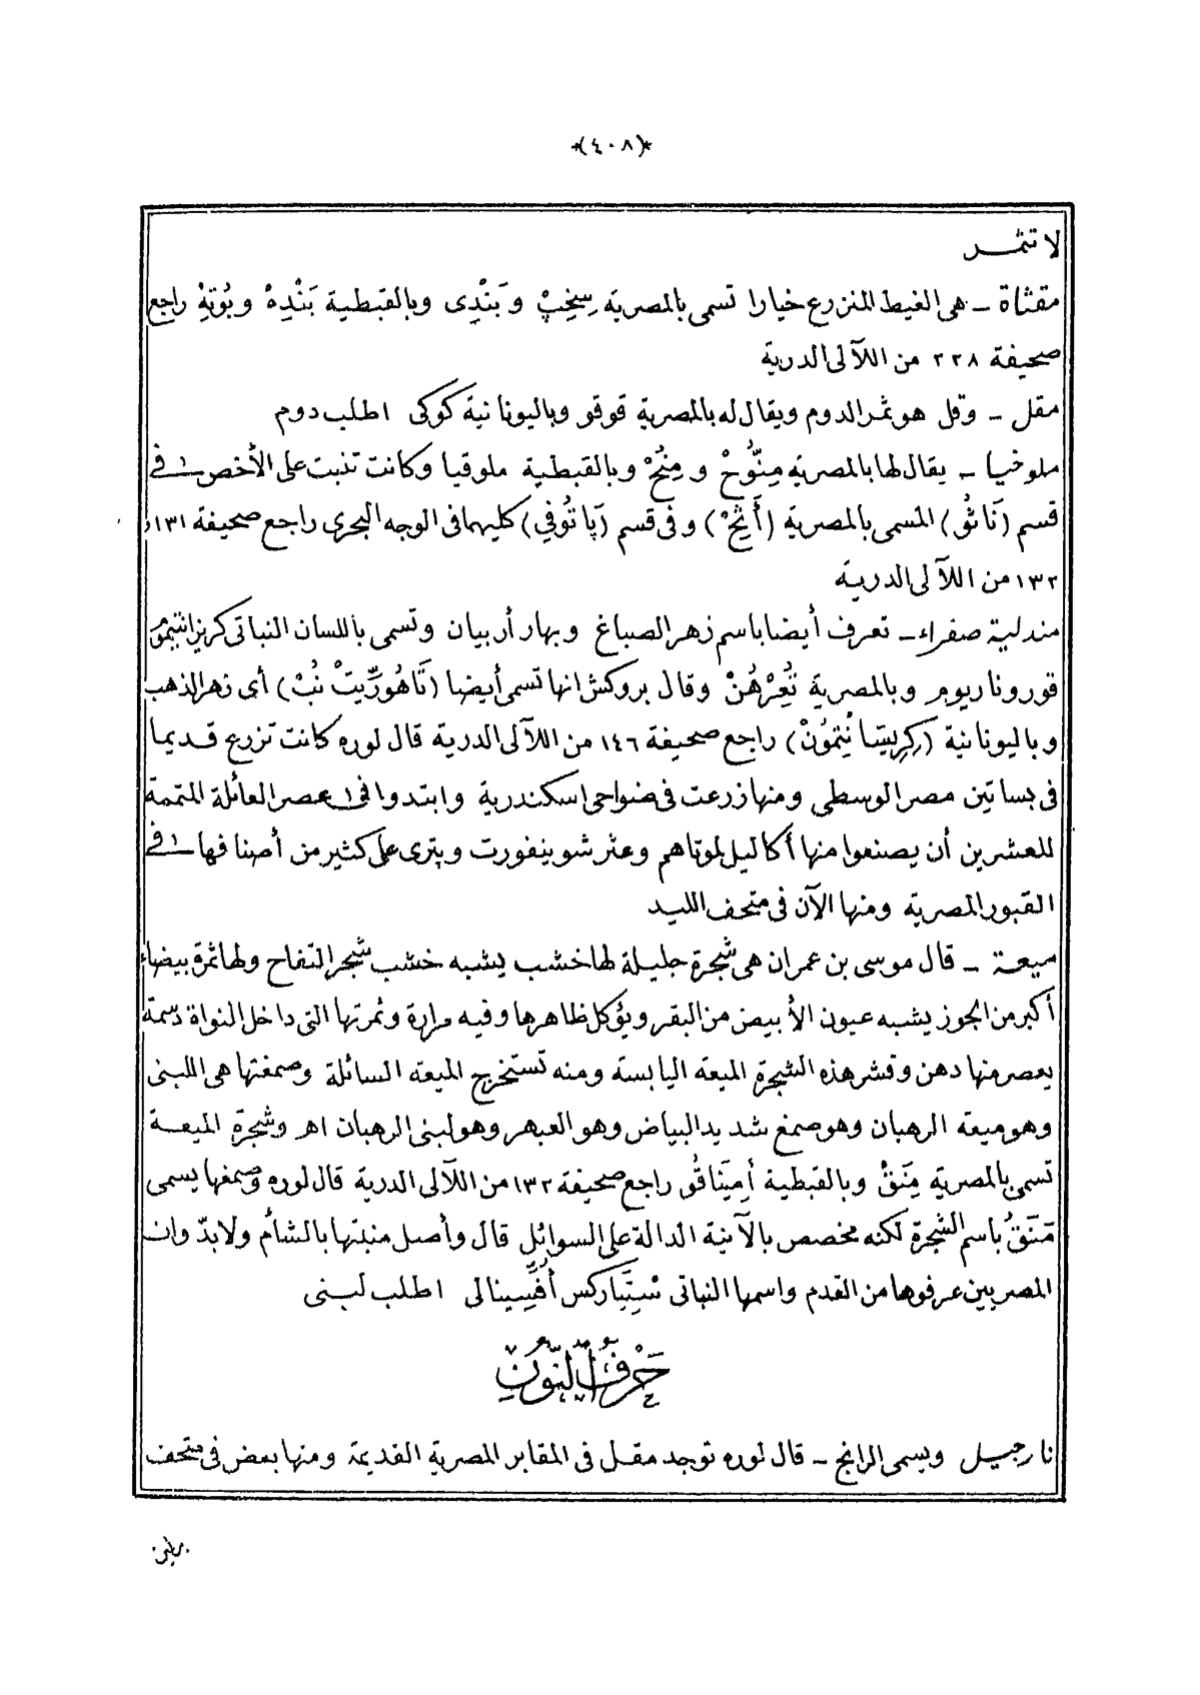 *(٤٠٨)*
لا تثمر
مقثاة ـ هى الغيط المنزرع خيارا تسمى بالمصرية سِخِبْ و بَنْدِى وبالقبطية بَنْدِهْ وبُوتِهْ راجع
صحيفة ٢٢٨ من اللآلى الدرية
مقل ـ وقل هو ثمر الدوم ويقال له بالمصرية قوقو وباليونانية كوكى اطلب دوم
ملوخيا ـ يقال لها بالمصرية مِنَّوحْ و مِنُحْ وبالقبطية ملوقيا وكانت تنبت على الأخص فى
قسم (نَاثُو) المسمى بالمصرية (أَتِحْ) وفى قسم (پَاتُوفِي) كليهما فى الوجه البحرى راجع صحيفة ١٣١ و
١٣٢ من اللآلى الدرية
مندلية صفراء ـ تعرف أيضا باسم زهر الصباغ وبهار أربيان وتسمى باللسان النباتى كريزانتيمُومْ
قوروناريوم وبالمصرية نُعِرْهُنْ وقال بروكش انها تسمى أيضا (تَاهُورِّيتْ نُبْ) أى زهر الذهب
وباليونانية (كِرِيسَانْتِمُونْ) راجع صحيفة ١٤٦ من اللآلى الدرية قال لوره كانت تزرع قديما
فى بساتين مصر الوسطى ومنها زرعت فى ضواحى اسكندرية وابتدوا فى عصر العائلة المتممة
للعشرين أن يصنعوا منها أكاليل لموتاهم وعثر شوينفورت وپترى على كثير من أصنافها فى
القبور المصرية ومنها الآن فى متحف الليد
ميعة ـ قال موسى بن عمران هى شجرة جليلة لها خشب يشبه خشب شجر التفاح ولها ثمرة بيضاء
أكبر من الجوز يشبه عيون الأبيض من البقر ويؤكل ظاهرها وفيه مرارة وثمرتها التى داخل النواة دسمة
يعصر منها دهن وقشر هذه الشجرة الميعة اليابسة ومنه تستخرج الميعة السائلة وصمغتها هى اللبنى
وهو ميعة الرهبان وهو صمغ شديد البياض وهو العبهر وهو لبنى الرهبان اهـ وشجرة الميعة
تسمى بالمصرية مِنَقْ وبالقبطية أمِينَاقُو راجع صحيفة ١٣٢ من اللآلى الدرية قال لوره وصمغها يسمى
مَنَقُ باسم الشجرة لكنه مخصص بالآنية الدالة على السوائل قال وأصل منبتها بالشأم ولابدّ وان
المصريين عرفوها من القدم واسمها النباتى سْتِيرَاركس أُفّسِينالى اطلب لبنى
حَرْفُ النُّونِ
نارجيل ويسمى الرانج ـ قال لوره توجد مقل فى المقابر المصرية القديمة ومنها بعض فى متحف
برلين